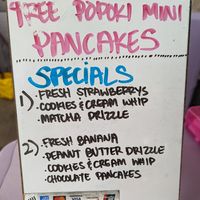 FREE POPOKI MINI
PANCAKES
SPECIALS
1) · FRESH STRAWBERRYS
· COOKIES & CREAM WHIP
· MATCHA DRIZZLE
2) · FRESH BANANA
· PEANUT BUTTER DRIZZLE
· COOKIES & CREAM WHIP
· CHOCOLATE PANCAKES
VISA